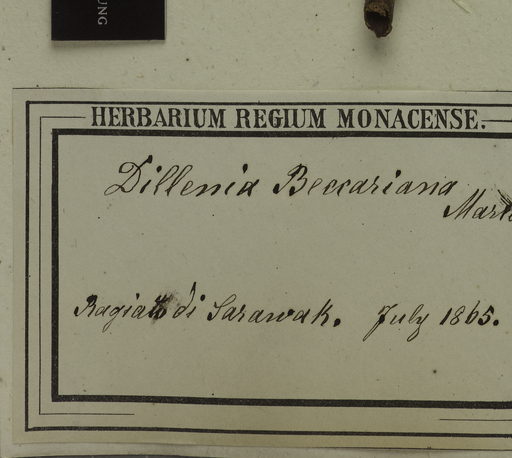 UNG
HERBARIUM REGIUM MONACENSE.
Dillenia Beccariana
Mart
Ragiato di Sarawak. July 1865.